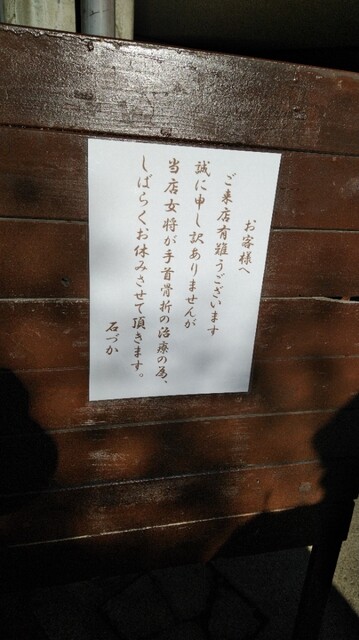 お客様へ
ご来店有難うございます
誠に申し訳ありませんが
当店女将が手首骨折の治療の為、
しばらくお休みさせて頂きます。
石づか